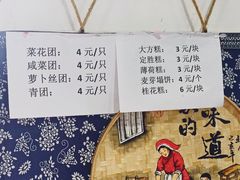 菜花团： 4 元/只
咸菜团： 4 元/只
萝卜丝团：4 元/只
青团： 4 元/只
大方糕： 3 元/块
定胜糕： 3 元/块
薄荷糕： 3 元/块
麦芽塌饼：4 元/个
桂花糕： 6 元/块
味道
的